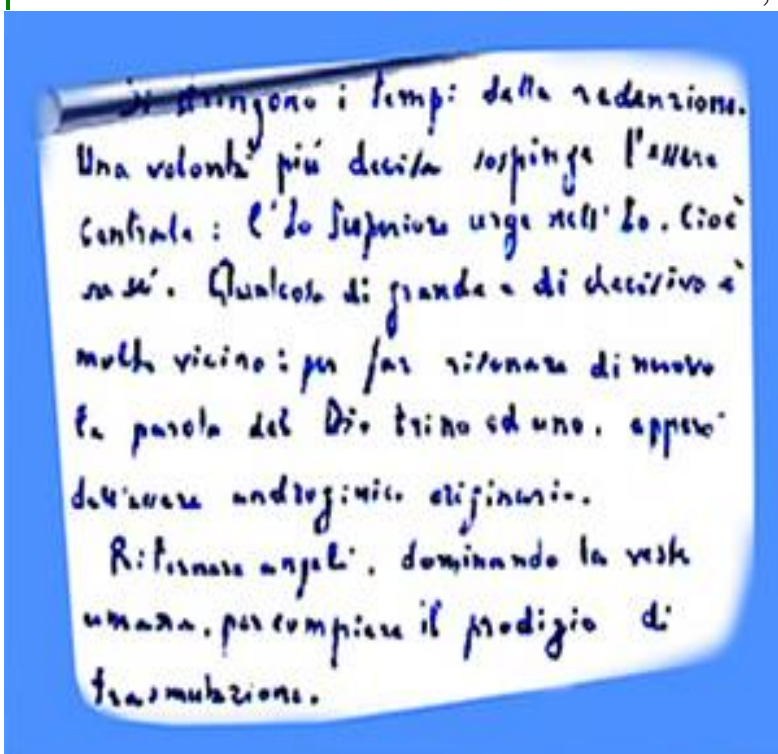 Si stringono i tempi della redenzione.
Una volontà più decisa sospinge l'essere
Centrale: l'Io Superiore urge nell'Io. Cioè
in sé. Qualcosa di grande e di decisivo è
molto vicino: per far risonare di nuovo
la parola del Dio trino ed uno.
dell'essere androginico originario.
Ritornare angeli, dominando la veste
umana, per compiere il prodigio di
trasmutazione.